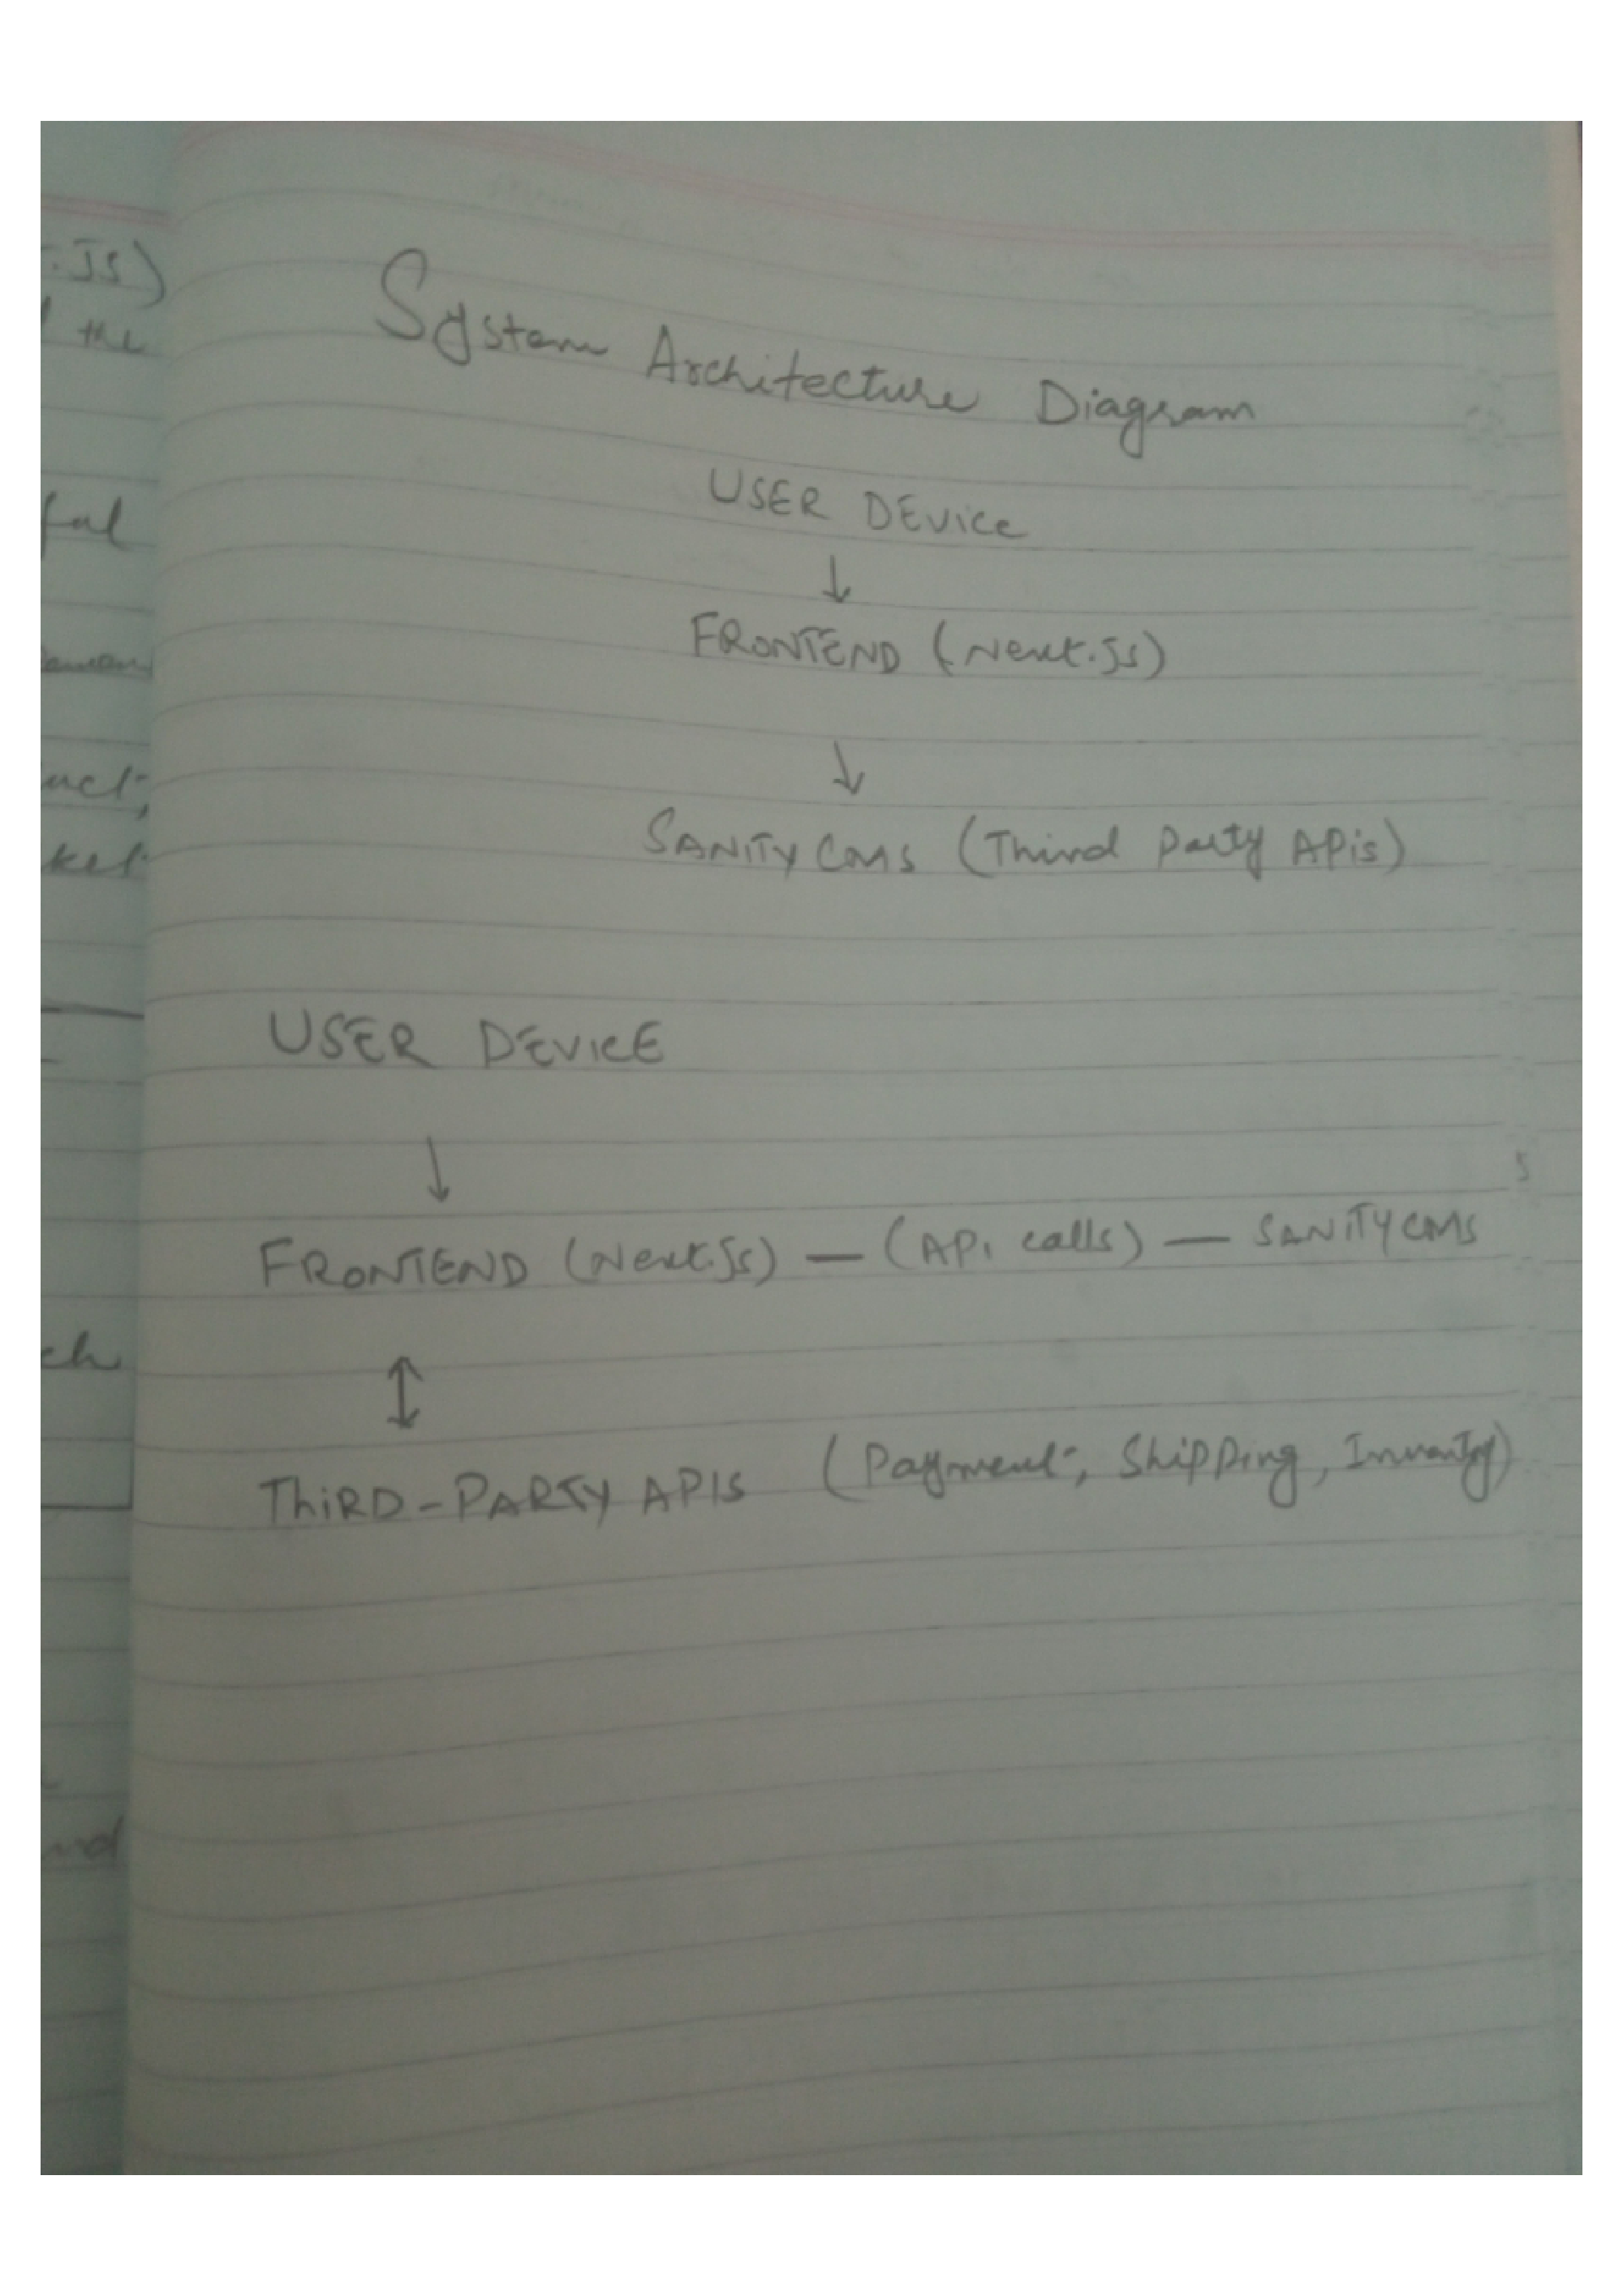 .JS)
the
ful
uct,
ket
ch
System Architecture Diagram
USER DEVice
↓
FRONTEND (Next.js)
↓
SANITY CMS (Third Party APis)
USER DEVICE
↓
FRONTEND (Next.js) — (APi calls) — SANITY CMS
↕
THiRD-PARTY APIS (Payment, Shipping, Inventory)